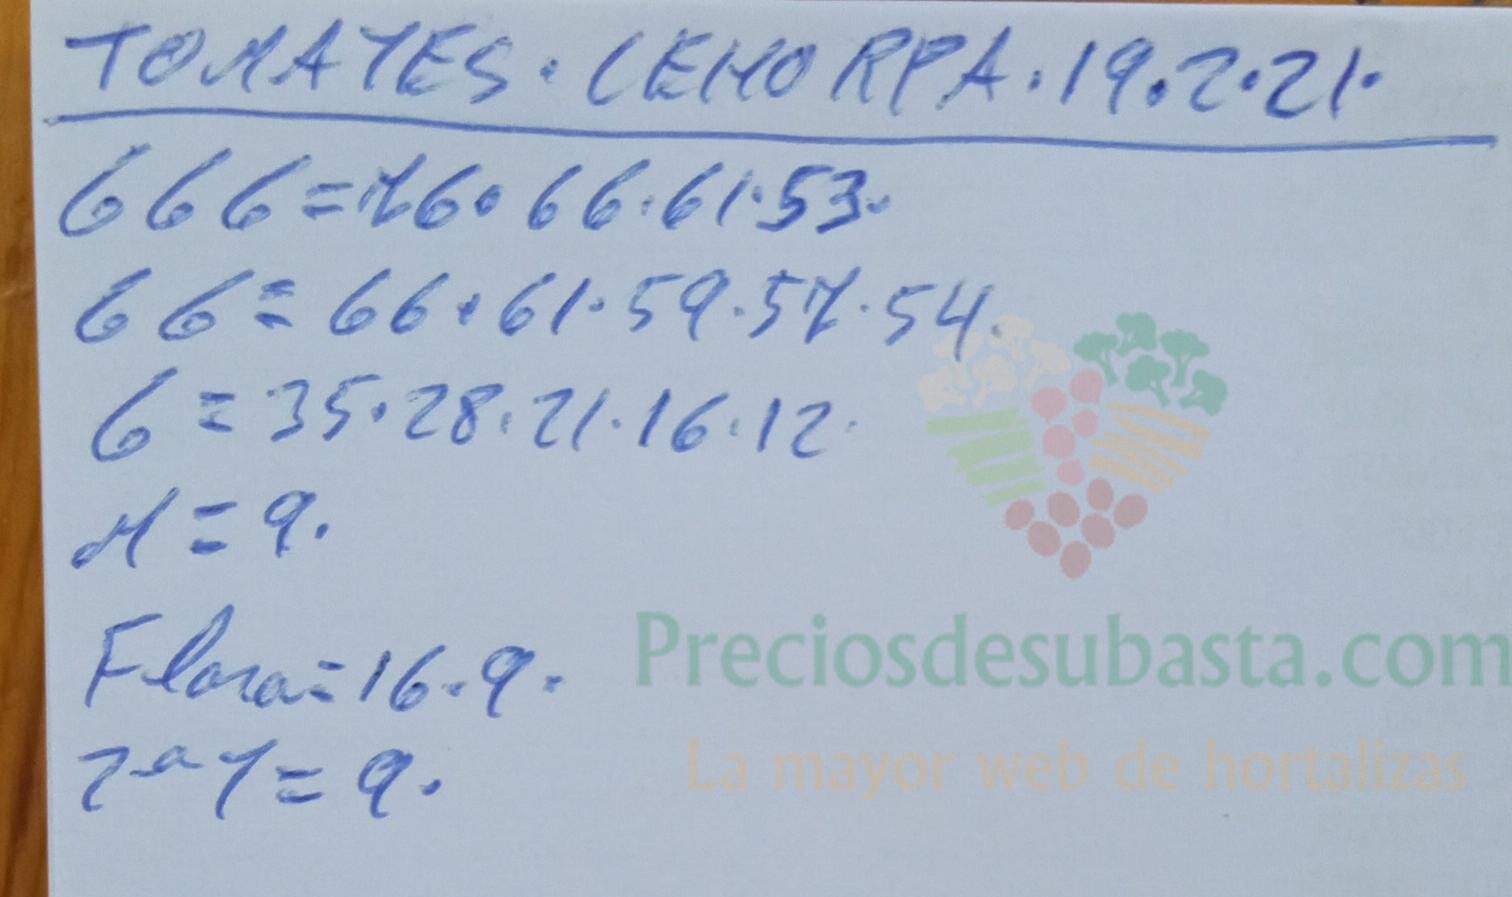 TOMATES. CEHORPA. 19.2.21.
GGG = 76. 66. 61. 53.
GG = 66. 61. 59. 57. 54.
G = 35. 28. 21. 16. 12.
M = 9.
Flora = 16. 9.
2ª = 9.
Preciosdesubasta.com
La mayor web de hortalizas